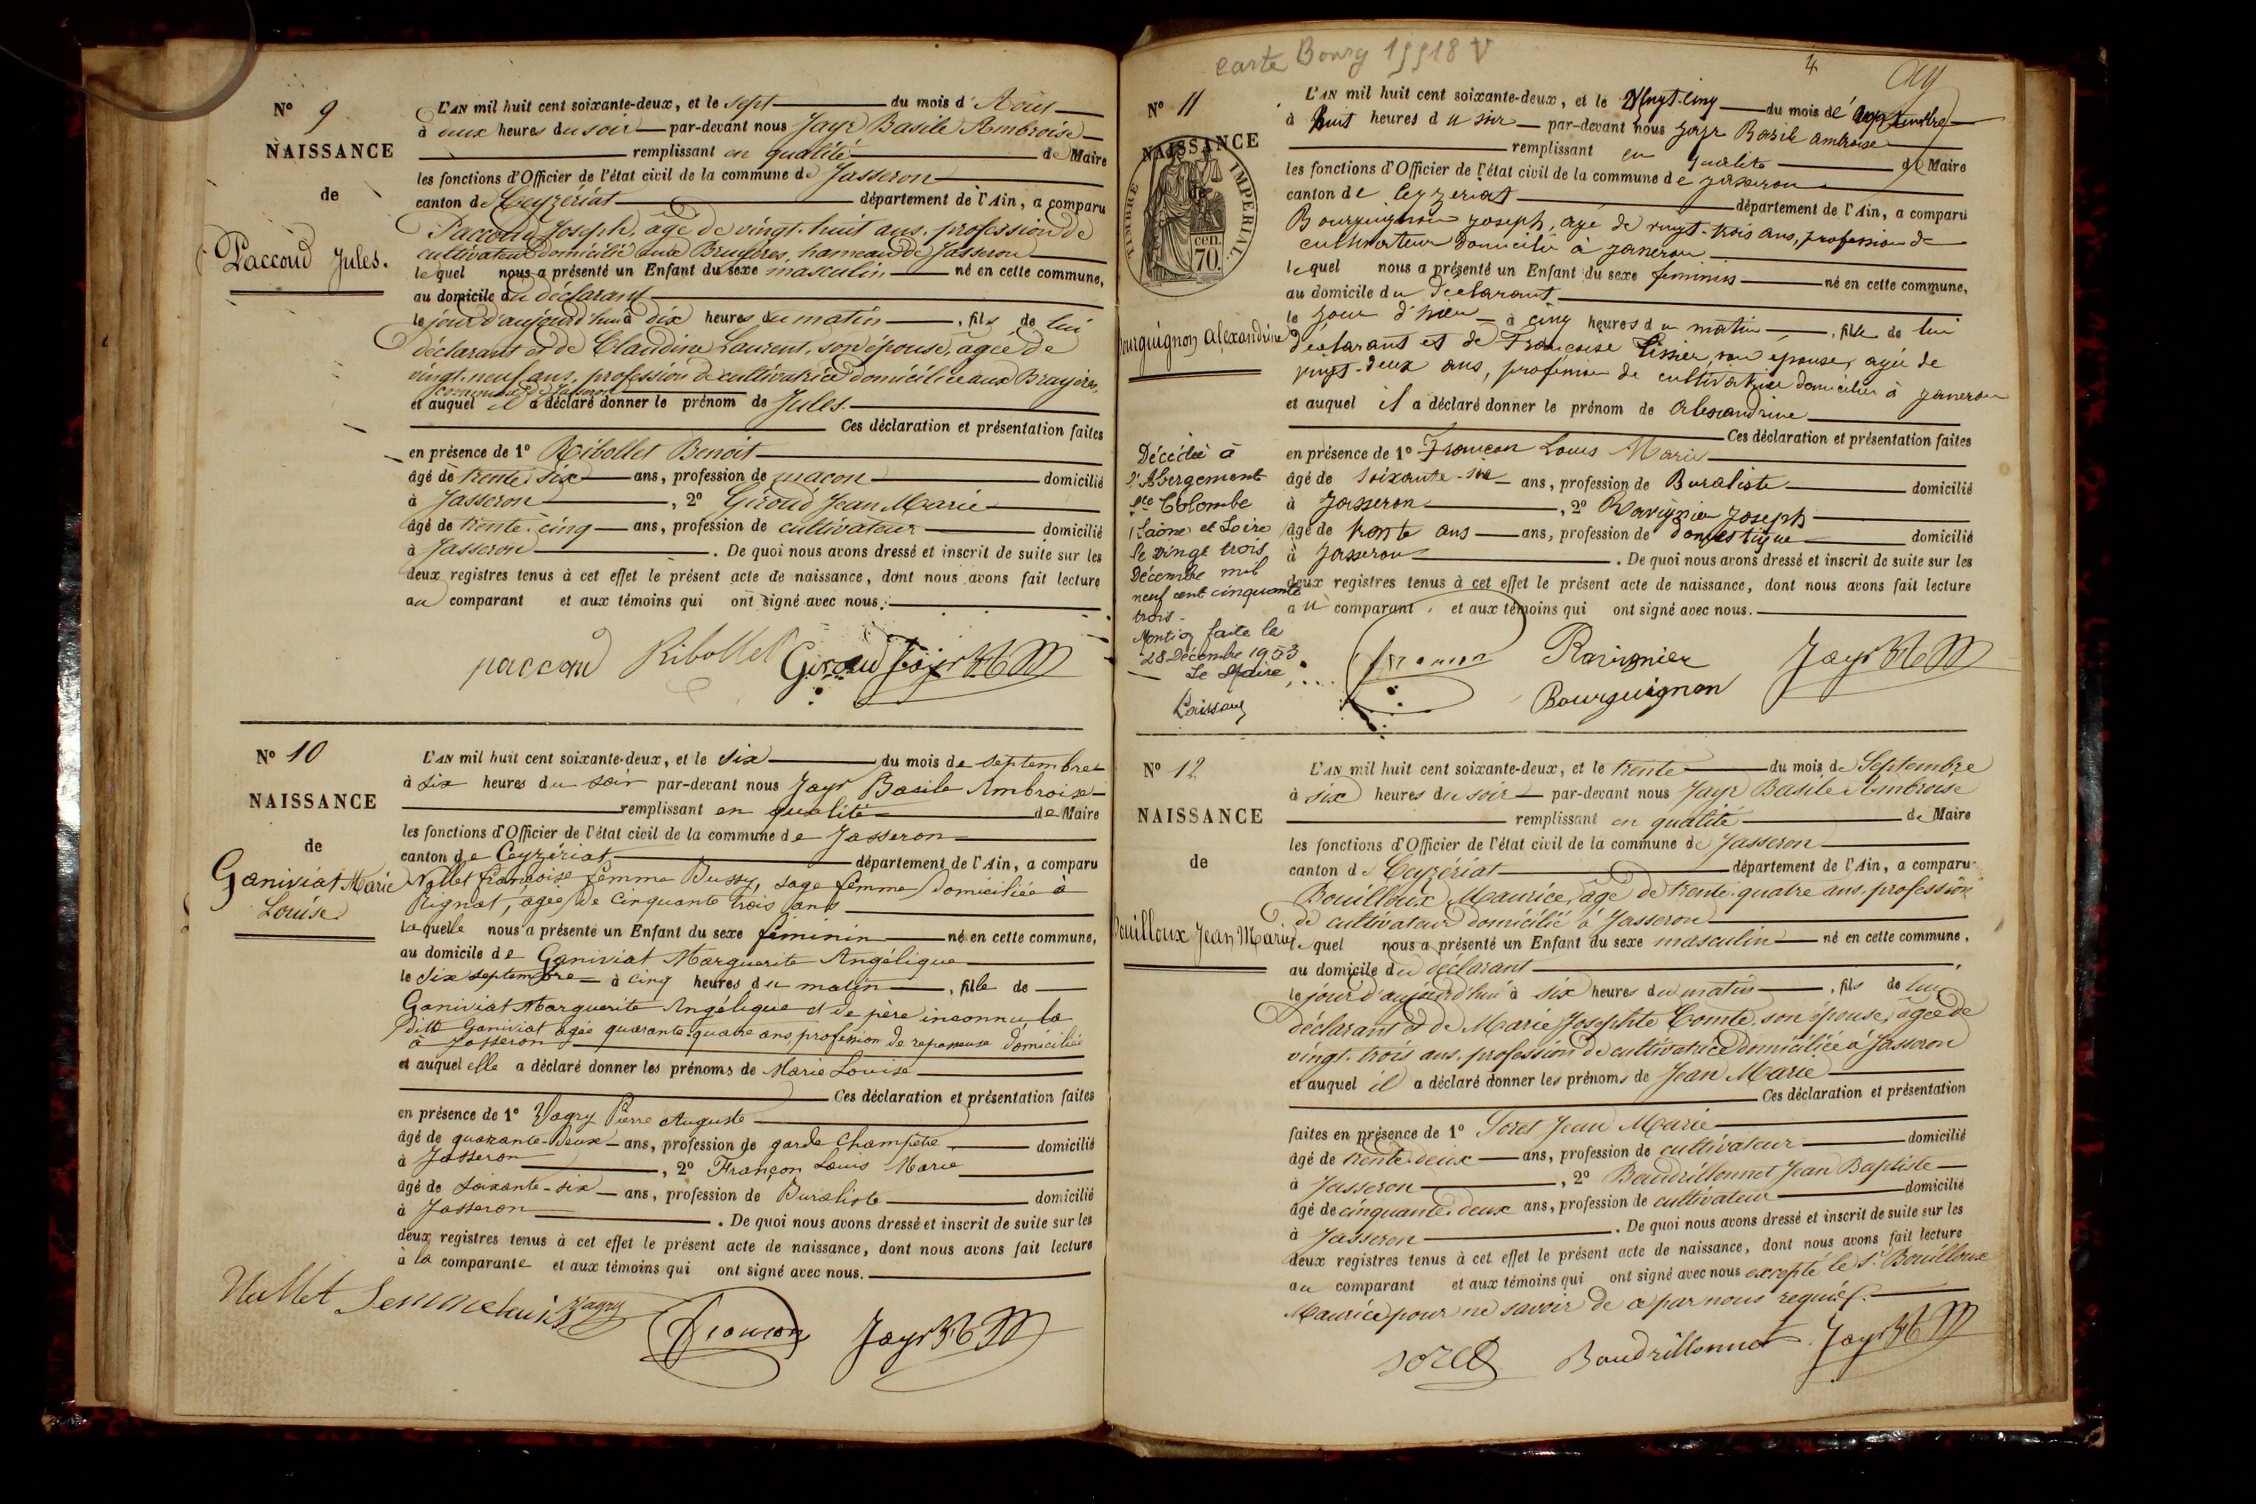 N° 9
NAISSANCE
de
Paccoud Jules.
L'AN mil huit cent soixante-deux, et le sept du mois d'Août
à deux heures du soir par-devant nous Jayr Basile Ambroise
remplissant en qualité de Maire
les fonctions d'Officier de l'état civil de la commune de Jasseron
canton de Ceyzériat département de l'Ain, a comparu
Paccoud Joseph, âgé de vingt-huit ans, profession de
cultivateur domicilié aux Bruyères, hameau de Jasseron
lequel nous a présenté un Enfant du sexe masculin né en cette commune,
au domicile du déclarant
le jour d'aujourd'hui à dix heures du matin, fils de lui
déclarant et de Claudine Laurent, son épouse, âgée de
vingt-neuf ans, profession de cultivatrice domiciliée aux Bruyères,
commune de Jasseron
et auquel il a déclaré donner le prénom de Jules.
Ces déclaration et présentation faites
en présence de 1° Ribollet Benoit
âgé de trente six ans, profession de maçon domicilié
à Jasseron, 2° Giroud Jean Marie
âgé de trente-cinq ans, profession de cultivateur domicilié
à Jasseron. De quoi nous avons dressé et inscrit de suite sur les
deux registres tenus à cet effet le présent acte de naissance, dont nous avons fait lecture
au comparant et aux témoins qui ont signé avec nous.
paccoud Ribollet Giroud Jayr
N° 10
NAISSANCE
de
Ganiviat Marie
Louise
L'AN mil huit cent soixante-deux, et le six du mois de septembre
à six heures du soir par-devant nous Jayr Basile Ambroise
remplissant en qualité de Maire
les fonctions d'Officier de l'état civil de la commune de Jasseron
canton de Ceyzériat département de l'Ain, a comparu
Nallet françoise femme Bussy, sage femme domiciliée à
Rignat, âgée de cinquante trois ans
laquelle nous a présenté un Enfant du sexe féminin né en cette commune,
au domicile de Ganiviat Marguerite Angélique
le six septembre à cinq heures du matin, fille de
Ganiviat Marguerite Angélique et de père inconnu, la
dite Ganiviat âgée quarante-quatre ans profession de repasseuse domiciliée
à Jasseron
et auquel elle a déclaré donner les prénoms de Marie Louise
Ces déclaration et présentation faites
en présence de 1° Vagry Pierre Auguste
âgé de quarante-deux ans, profession de garde champêtre domicilié
à Jasseron, 2° Françon Louis Marie
âgé de soixante-six ans, profession de Buraliste domicilié
à Jasseron. De quoi nous avons dressé et inscrit de suite sur les
deux registres tenus à cet effet le présent acte de naissance, dont nous avons fait lecture
à la comparante et aux témoins qui ont signé avec nous.
Nallet Vagry francon Jayr
carte Bourg 15518 V
4
N° 11
NAISSANCE
TIMBRE IMPÉRIAL
CEN.
70.
Bourguignon Alexandrine
L'AN mil huit cent soixante-deux, et le Vingt-cinq du mois de septembre
à huit heures du soir par-devant nous Jayr Basile ambroise
remplissant en qualité de Maire
les fonctions d'Officier de l'état civil de la commune de Jasseron
canton de Ceyzeriat département de l'Ain, a comparu
Bourguignon Joseph, âgé de vingt-trois ans, profession de
cultivateur domicilié à Jasseron
lequel nous a présenté un Enfant du sexe féminin né en cette commune,
au domicile du déclarant
le jour d'hier à cinq heures du matin, fille de lui
déclarant et de Françoise Tissier, son épouse, agée de
vingt-deux ans, profession de cultivatrice domiciliée à Jasseron
et auquel il a déclaré donner le prénom de Alexandrine
Ces déclaration et présentation faites
en présence de 1° Françon Louis Marie
âgé de soixante-six ans, profession de Buraliste domicilié
à Jasseron, 2° Ravignier Joseph
âgé de trente ans ans, profession de domestique domicilié
à Jasseron. De quoi nous avons dressé et inscrit de suite sur les
deux registres tenus à cet effet le présent acte de naissance, dont nous avons fait lecture
au comparant et aux témoins qui ont signé avec nous.
francon Ravignier Jayr
Bourguignon
Décédée à
l'Abergement
Ste Colombe
(Saône et Loire
le vingt trois
Décembre mil
neuf cent cinquante
trois.
Mention faite le
28 Décembre 1953
Le Maire
N° 12
NAISSANCE
de
Bouilloux Jean Marie
L'AN mil huit cent soixante-deux, et le trente du mois de Septembre
à six heures du soir par-devant nous Jayr Basile Ambroise
remplissant en qualité de Maire
les fonctions d'Officier de l'état civil de la commune de Jasseron
canton de Ceyzériat département de l'Ain, a comparu
Bouilloux Maurice, âgé de trente-quatre ans, profession
de cultivateur domicilié à Jasseron
lequel nous a présenté un Enfant du sexe masculin né en cette commune,
au domicile du déclarant
le jour d'aujourd'hui à six heures du matin, fils de lui
déclarant et de Marie Josephte Comte, son épouse, âgée de
vingt-trois ans, profession de cultivatrice domiciliée à Jasseron
et auquel il a déclaré donner les prénoms de Jean Marie
Ces déclaration et présentation
faites en présence de 1° Soret Jean Marie
âgé de trente-deux ans, profession de cultivateur domicilié
à Jasseron, 2° Baudrillonnet Jean Baptiste
âgé de cinquante-deux ans, profession de cultivateur domicilié
à Jasseron. De quoi nous avons dressé et inscrit de suite sur les
deux registres tenus à cet effet le présent acte de naissance, dont nous avons fait lecture
au comparant et aux témoins qui ont signé avec nous excepté le Sr Bouilloux
Maurice pour ne savoir de ce par nous requis.
soret Baudrillonnet Jayr